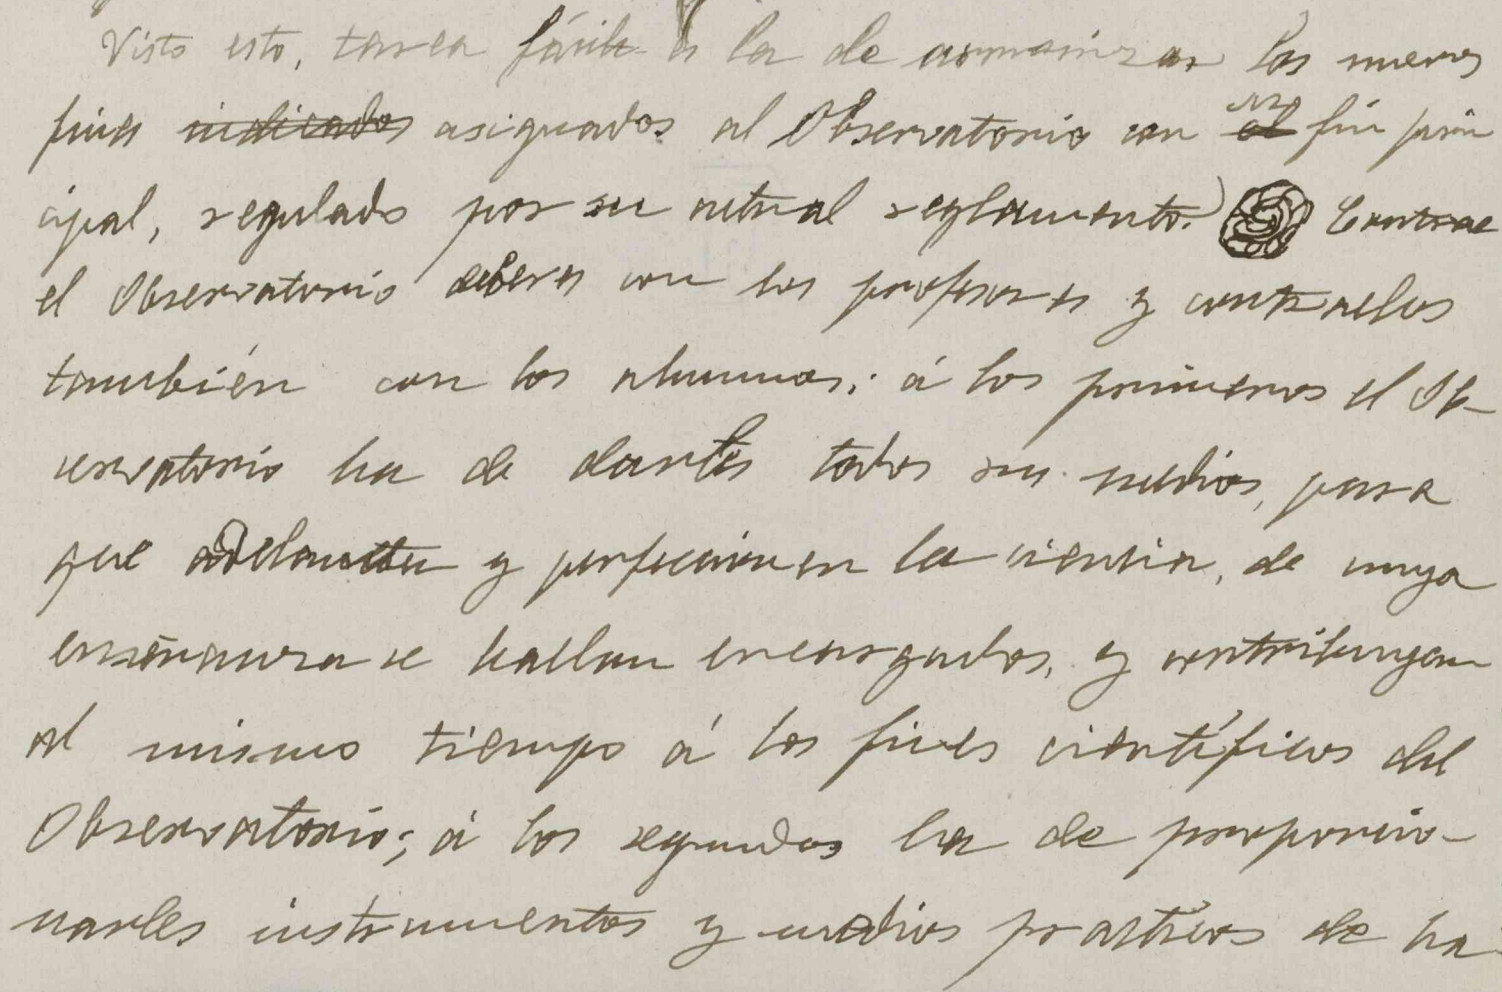 Visto esto, tarea fácil es la de armonizar los nuevos
fines indicados asignados al Observatorio con el su fin prin
cipal, regulado por su actual reglamento. Contrae
el Observatorio deberes con los profesores y contraelos
también con los alumnos; á los primeros el Ob-
servatorio ha de darles todos sus medios, para
que adelanten y perfeccionen la ciencia, de cuya
enseñanza se hallan encargados, y contribuyan
al mismo tiempo á los fines científicos del
Observatorio; á los segundos ha de proporcio-
narles instrumentos y medios practicos de ha-